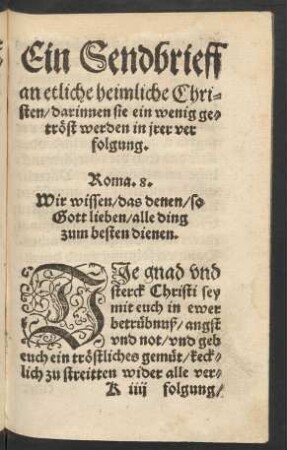 Ein Sendbrieff
an etliche heimliche Chri-
sten/darinnen sie ein wenig ge-
tröst werden in jrer ver
folgung.
Roma. 8.
Wir wissen/das denen/so
Gott lieben/alle ding
zum besten dienen.
DIe gnad vnd
sterck Christi sey
mit euch in ewer
betrübnuß/angst
vnd not/vnd geb
euch ein tröstliches gemüt/keck-
lich zu streitten wider alle ver-
K iiij folgung/